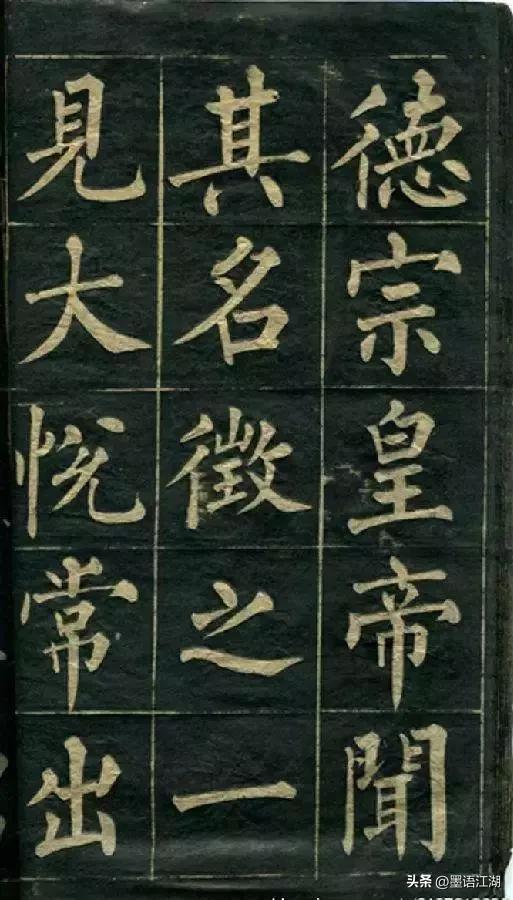 德宗皇帝聞
其名徵之一
見大悅常出
头条 @墨语江湖